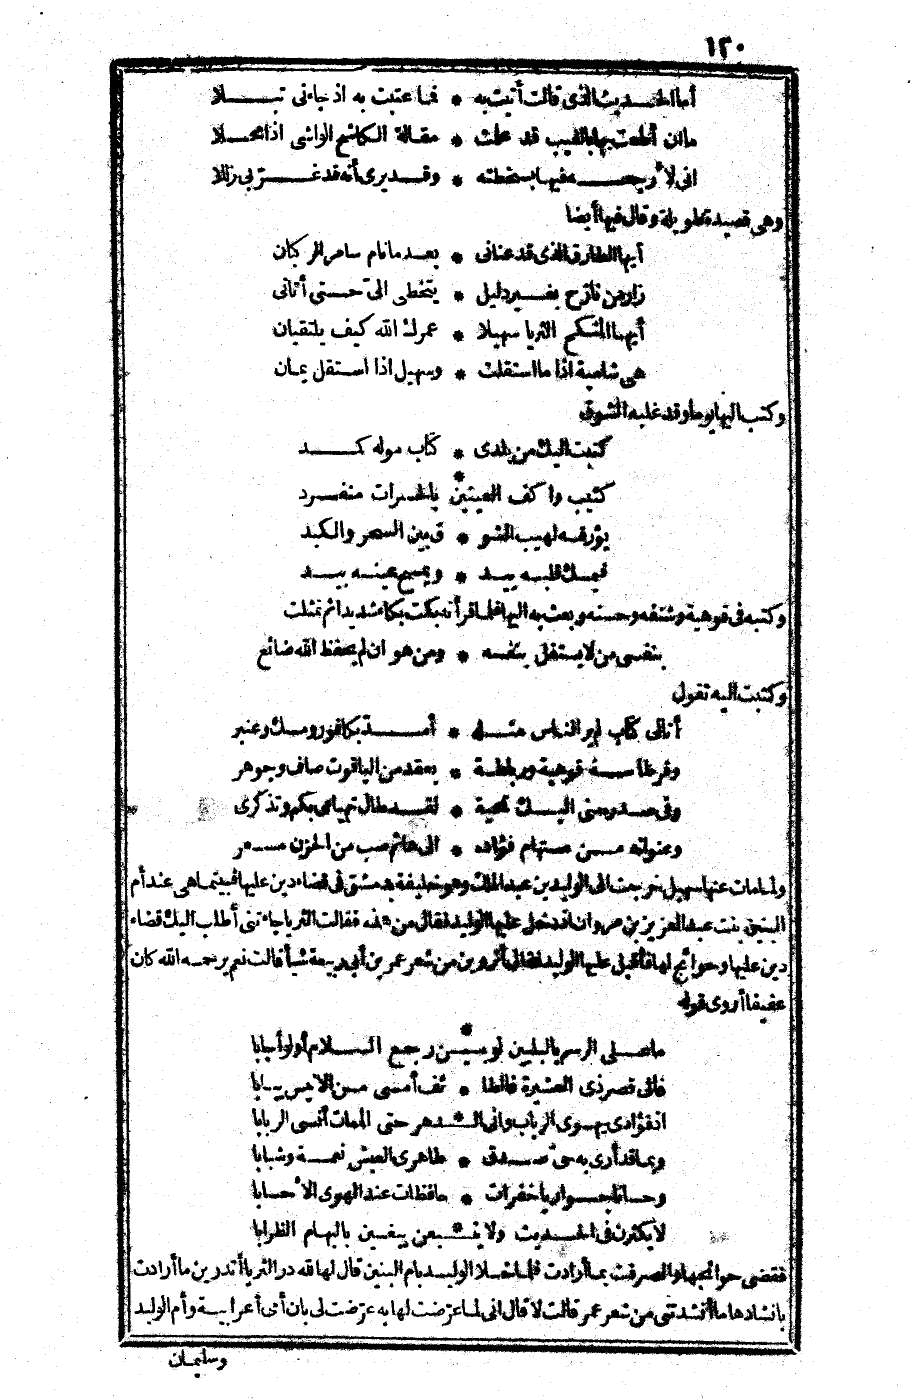 ١٣٠
أما الحديث الذي قالت أتيت به * فما عتبت به اذ جاءني تبلا
ما ان أطعت بها بالغيب قد علمت * مقالة الكاشح الواشي اذا محلا
اني لأرجعه فيها بسخطته * وقد يرى أنه قد غرني زللا
وهي قصيدة طويلة وقال فيها أيضا
أيها الطارق الذي قد عناني * بعد ما نام سامر الركبان
زار من نازح بغير دليل * يتخطى الي حتى أتاني
أيها المنكح الثريا سهيلا * عمرك الله كيف يلتقيان
هي شامية اذا ما استقلت * وسهيل اذا استقل يمان
وكتب اليها يوما وقد غلبه الشوق
كتبت اليك من بلدي * كتاب موله كمد
كئيب واكف العينين * بالحسرات منفرد
يؤرقه لهيب الشو * ق بين السحر والكبد
فيمسك قلبه بيد * ويمسح عينه بيد
وكتبه في قوهية وشنفه وحسنه وبعث به اليها فلما قرأته بكت بكاء شديدا ثم تمثلت
بنفسي من لا يستقل بنفسه * ومن هو ان لم يحفظ الله ضائع
وكتبت اليه تقول
أتاني كتاب لم ير الناس مثله * أمد بكافور ومسك وعنبر
وقرطاسه قوهية ورباطه * بعقد من الياقوت صاف وجوهر
وفي صدره مني اليك تحية * لقد طال تهيامي بكم وتذكري
وعنوانه من مستهام فؤاده * الى هائم صب من الحزن مسعر
ولما مات عنها سهيل خرجت الى الوليد بن عبد الملك وهو خليفة بدمشق في قضاء دين عليها فبينما هي عند أم
البنين بنت عبد العزيز بن مروان اذ دخل عليها الوليد فقال من هذه فقالت الثريا جاءتني أطلب اليك قضاء
دين عليها وحوائج لها فأقبل عليها الوليد فقال أتروين من شعر عمر بن أبي ربيعة شيأ قالت نعم يرحمه الله كان
عفيفا أروي قوله
ما على الرسم بالبليين لو بين رجع * السلام أو لو أجابا
فالى قصر ذي العشيرة فالطا * ئف أمسى من الانيس يبابا
اذ فؤادي يهوى الرباب واني الـ * ـدهر حتى الممات أنسى الربابا
وبما قد أرى به حي صدق * ظاهري العيش نعمة وشبابا
وحسانا جواريا خفرات * حافظات عند الهوى الأحسابا
لا يكثرن في الحديث ولا يتـ * ـبعن يبغين بالبهام الظرابا
فقضى حوائجها وانصرفت بما أرادت فلما خلا الوليد بأم البنين قال لها لله در الثريا أتدرين ما أرادت
بانشادها ما أنشدتني من شعر عمر قالت لا قال اني لما عرضت لها به عرضت لي بأن أمي أعرابية وأم الوليد
وسليمان